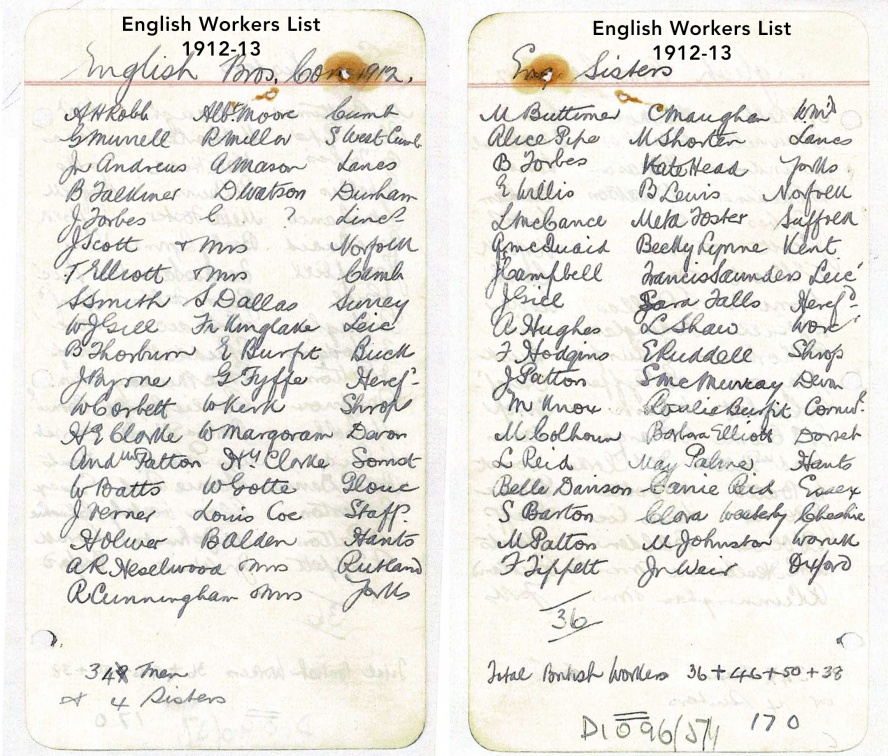 English Workers List
1912-13
English Bros. Con 1912.
A H Robb Albt. Moore Cumb
G Murrell R Millar S West Cumb
Jn Andrews A Mason Lancs
B Falkiner D Watson Durham
J Forbes ? Linc
J Scott + Mrs Norfolk
T Elliott + Mrs Camb
S Smith S Dallas Surrey
W J Gill Fr Kinglake Leic
B Thorburn E Burfit Buck
J Byrne G Fyffe Heref
W Corbett W Kerr Shrop
H E Clarke W Margoram Devon
And Patton Hy Clarke Somst
W Batts W Gotte Glouc
J Verner Louis Coe Staff
H Oliver B Alden Hants
A R Heselwood + Mrs Rutland
R Cunningham + Mrs Yorks
34 Men
+ 4 Sisters
English Workers List
1912-13
Eng Sisters
M Buttimer C Maughan Wmd
Alice Pipe M Shorten Lancs
B Forbes Kate Head Yorks
E Willis B Lewis Norfolk
L McCance Meta Foster Suffolk
A McQuaid Becky Lynne Kent
J Campbell Francis Saunders Leic
J Gill Sara Falls Heref
A Hughes L Shaw Worc
F Hodgins E Ruddell Shrop
J Patton S McMurray Devn
M Knox Rosalie Burfit Cornw.
M Colhoun Barbara Elliott Dorset
L Reid May Palmer Hants
Belle Davison Carrie Reid Essex
S Barton Clora Weaterby Cheshire
M Patton M Johnston Warwk
F Tippett Jn Weir Oxford
36
Total British Workers 36+46+50+38
D1096/5/1 170